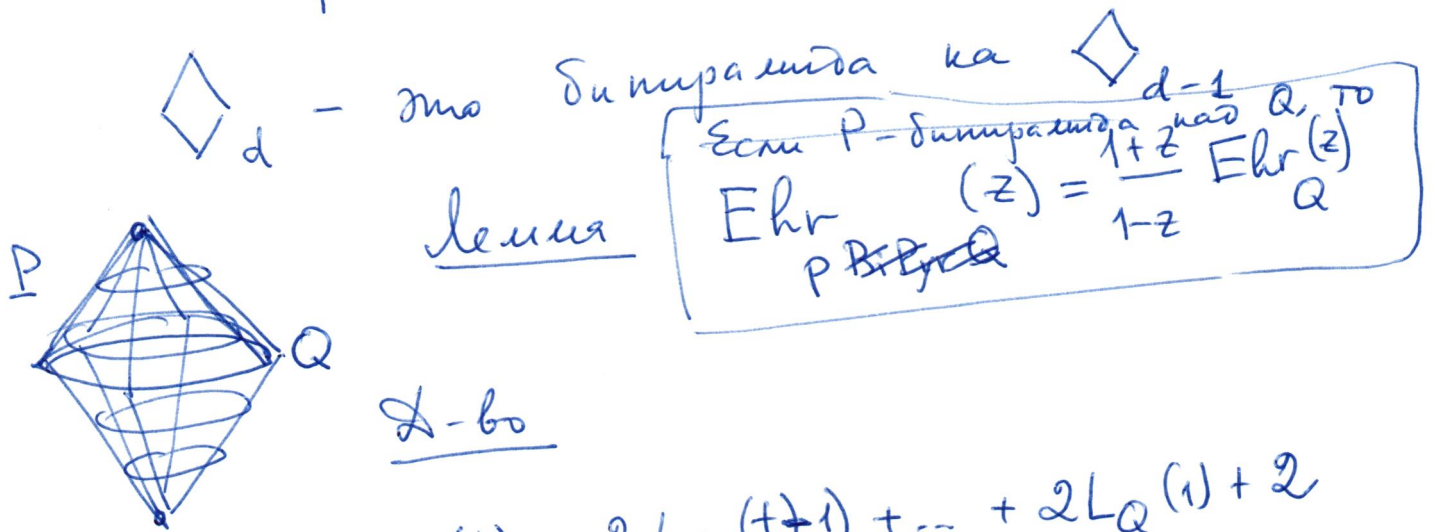 ◇_d - это бипирамида на ◇_{d-1}
Лемма
Если P - бипирамида над Q, то
Ehr_P (z) = \frac{1+z}{1-z} Ehr_Q (z)
P
Q
Д-во
2L (t-1) + ... + 2L_Q (1) + 2